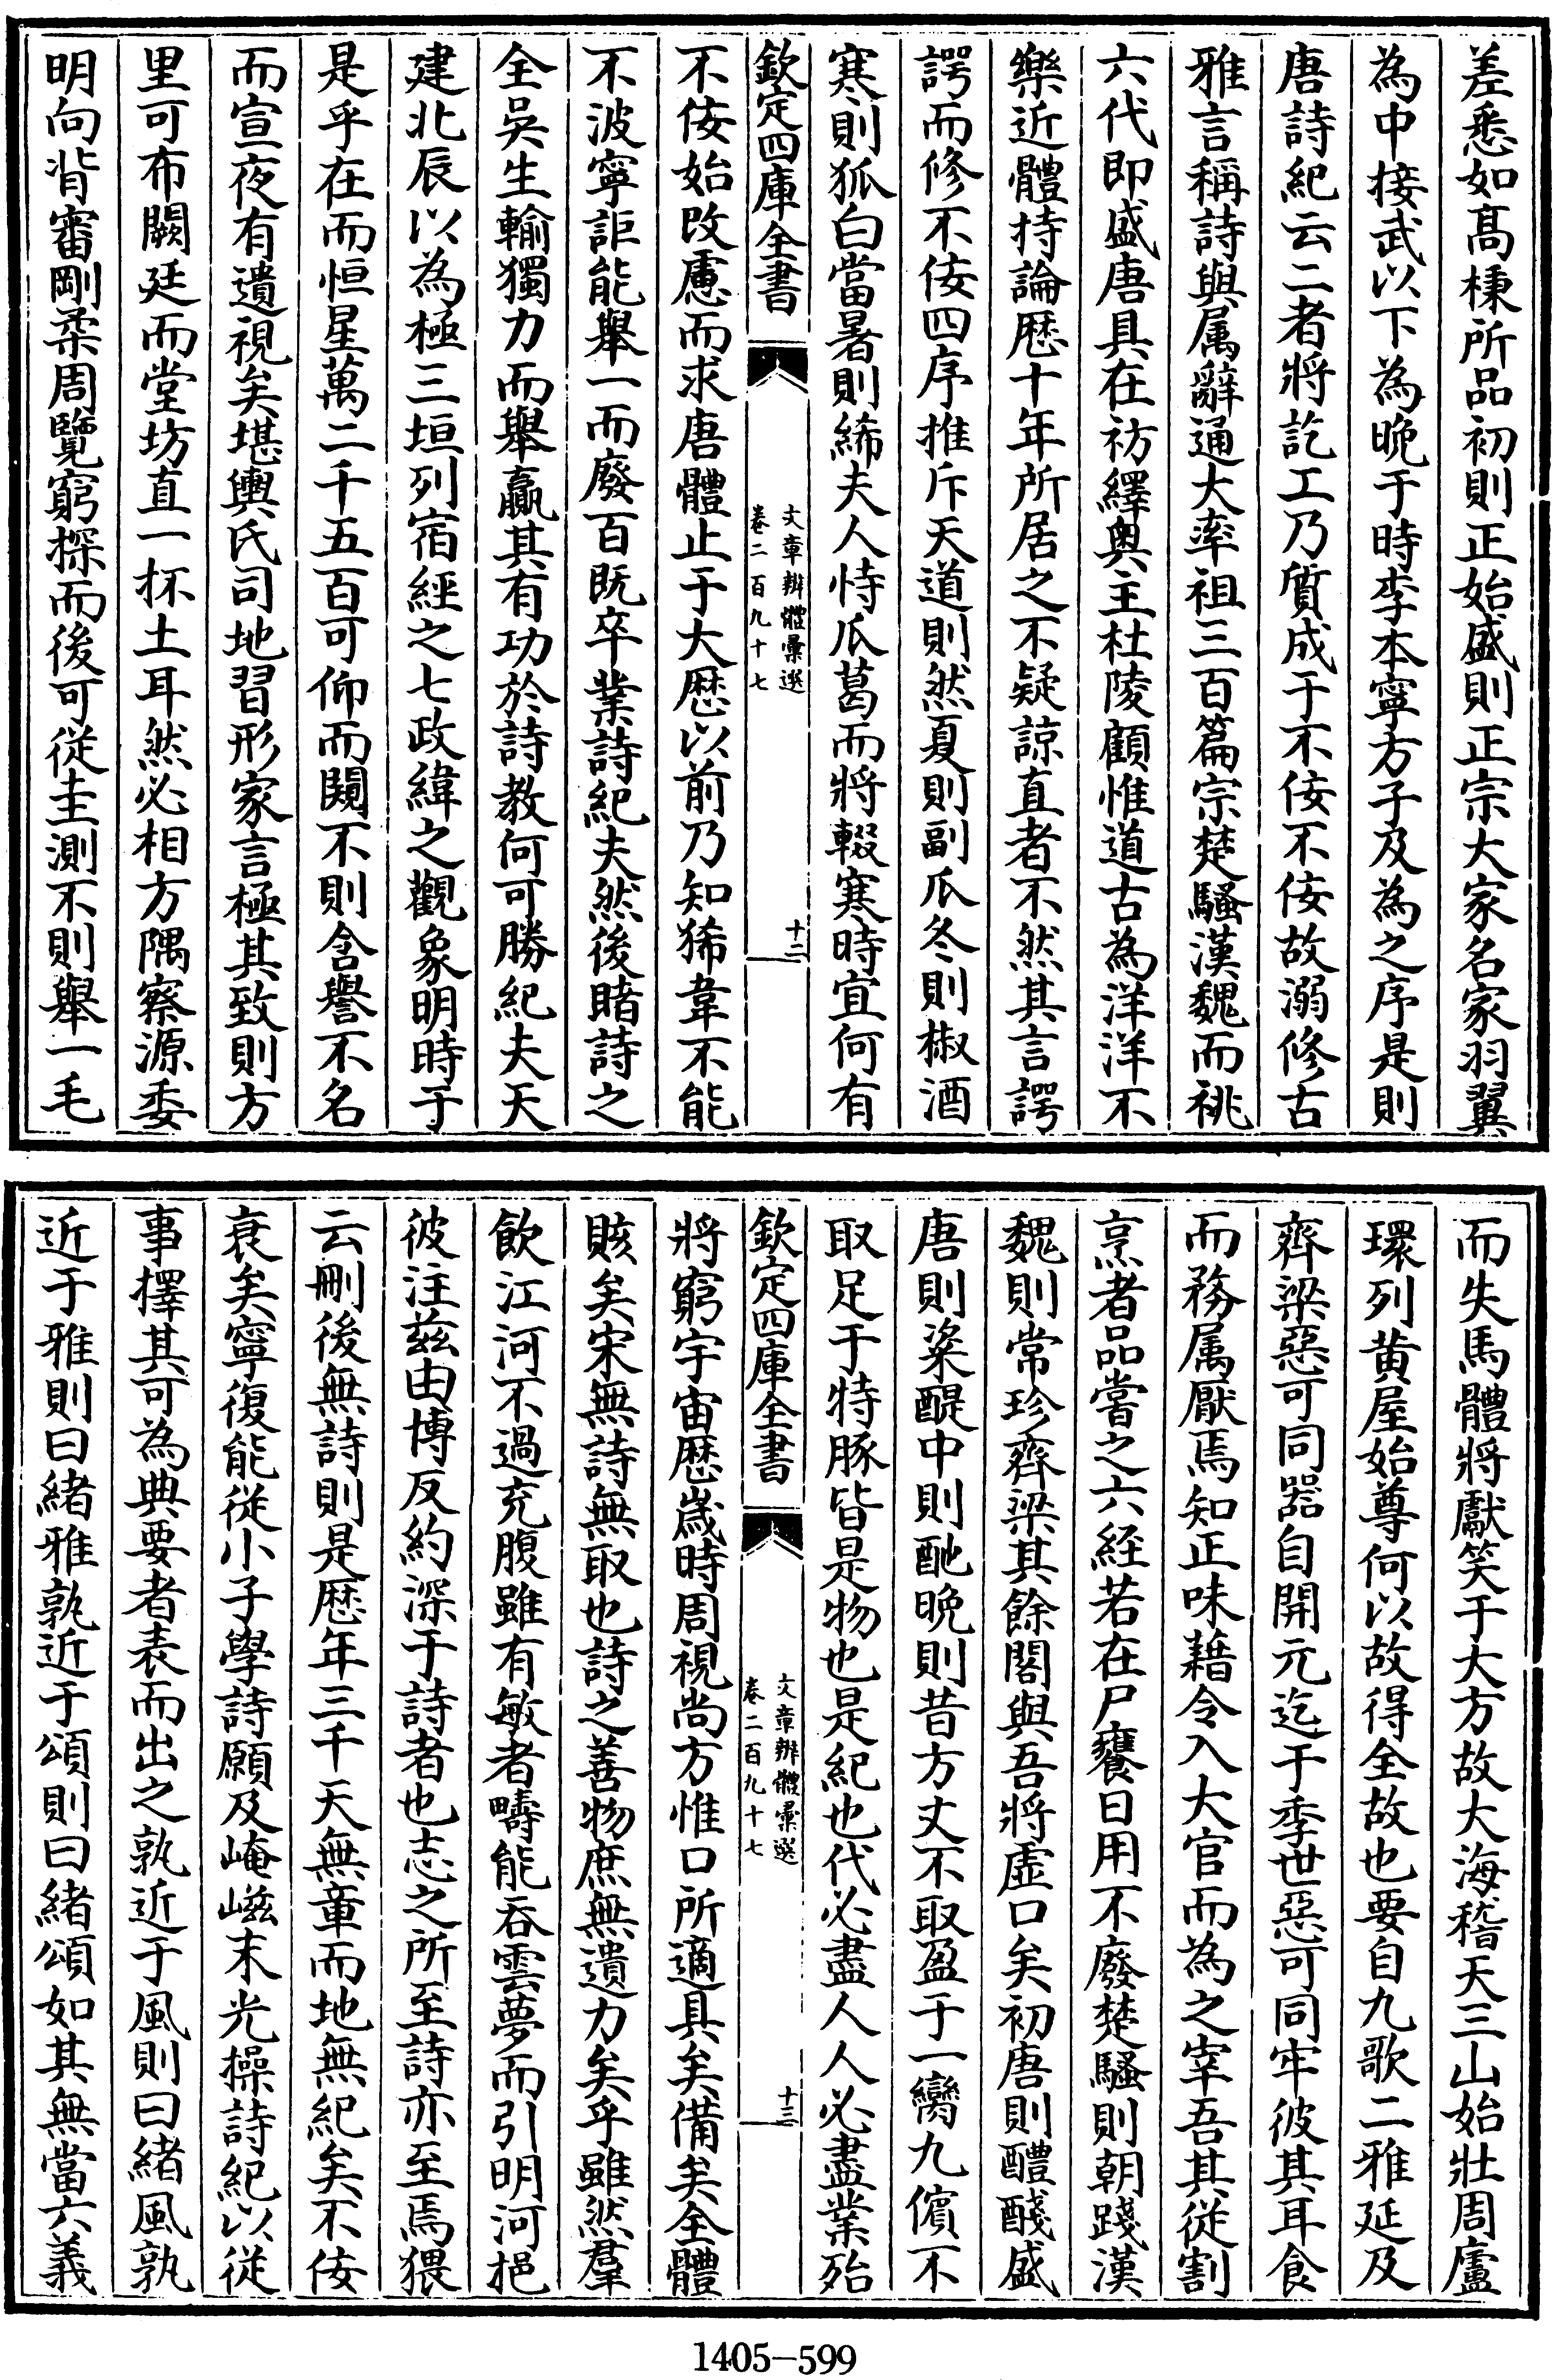 差悉如髙棅所品初則正始盛則正宗大家名家羽翼
為中接武以下為晩于時李本寧方子及為之序是則
唐詩紀云二者將訖工乃質成于不佞不佞故溺修古
雅言稱詩與属辭通大率祖三百篇宗楚騷漢魏而祧
六代即盛唐具在祊繹奥主杜陵顧惟道古為洋洋不
樂近體持論歴十年所居之不疑諒直者不然其言諤
諤而修不佞四序推斥天道則然夏則副瓜冬則椒酒
寒則狐白當暑則絺夫人恃瓜葛而將輟寒時宜何有
欽定四庫全書
文章辨體彙選
卷二百九十七
十二
不佞始改慮而求唐體止于大歴以前乃知狶韋不能
不波寧詎能舉一而廢百既卒業詩紀夫然後睹詩之
全吳生輸獨力而舉贏其有功於詩教何可勝紀夫天
建北辰以為極三垣列宿經之七政緯之觀象明時于
是乎在而恒星萬二千五百可仰而闚不則含譽不名
而宣夜有遺視矣堪輿氏司地習形家言極其致則方
里可布闕廷而堂坊直一抔土耳然必相方隅察源委
明向背審剛柔周覽窮探而後可從圭測不則舉一毛
而失馬體將獻笑于大方故大海稽天三山始壯周廬
環列黄屋始尊何以故得全故也要自九歌二雅延及
齊梁惡可同器自開元迄于季世惡可同牢彼其耳食
而務属厭焉知正味藉令入大官而為之宰吾其從割
烹者品嘗之六經若在尸饔日用不廢楚騷則朝踐漢
魏則常珍齊梁其餘閣與吾將虛口矣初唐則醴醆盛
唐則粢醍中則酏晩則昔方丈不取盈于一臠九儐不
取足于特豚皆是物也是紀也代必盡人人必盡業殆
欽定四庫全書
文章辨體彙選
卷二百九十七
十三
將窮宇宙歴嵗時周視尚方惟口所適具矣備矣全體
賅矣宋無詩無取也詩之善物庶無遺力矣乎雖然羣
飲江河不過充腹雖有敏者疇能吞雲夢而引明河挹
彼注兹由博反約深于詩者也志之所至詩亦至焉猥
云刪後無詩則是歴年三千天無章而地無紀矣不佞
衰矣寧復能從小子學詩願及崦嵫末光操詩紀以從
事擇其可為典要者表而出之孰近于風則曰緒風孰
近于雅則曰緒雅孰近于頌則曰緒頌如其無當六義
1405-599